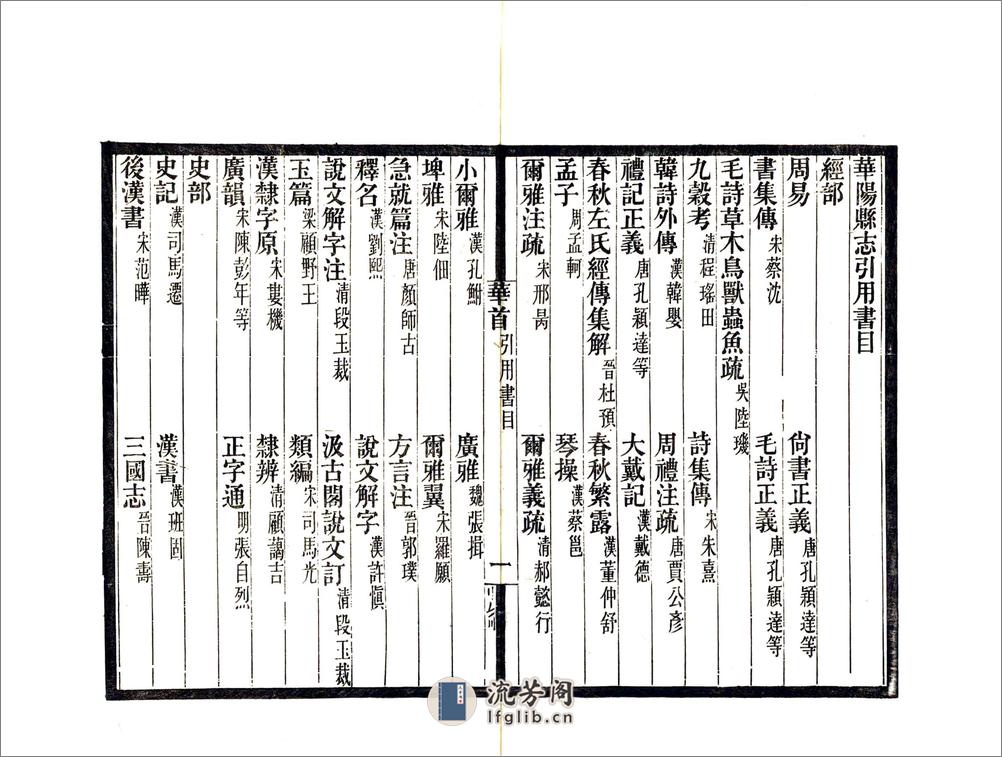 華陽縣志引用書目
經部
周易 尙書正義唐孔穎達等
書集傳宋蔡沈 毛詩正義唐孔穎達等
毛詩草木鳥獸蟲魚疏吳陸璣
九穀考清程瑤田 詩集傳宋朱熹
韓詩外傳漢韓嬰 周禮注疏唐賈公彥
禮記正義唐孔穎達等 大戴記漢戴德
春秋左氏經傳集解晉杜預 春秋繁露漢董仲舒
孟子周孟軻 琴操漢蔡邕
爾雅注疏宋邢昺 爾雅義疏清郝懿行
華首 引用書目 一
小爾雅漢孔鮒 廣雅魏張揖
埤雅宋陸佃 爾雅翼宋羅願
急就篇注唐顏師古 方言注晉郭璞
釋名漢劉熙 說文解字漢許愼
說文解字注清段玉裁 汲古閣說文訂清段玉裁
玉篇梁顧野王 類編宋司馬光
漢隸字原宋婁機 隸辨清顧藹吉
廣韻宋陳彭年等 正字通明張自烈
史部
史記漢司馬遷 漢書漢班固
後漢書宋范曄 三國志晉陳壽
流芳阁
lfglib.cn